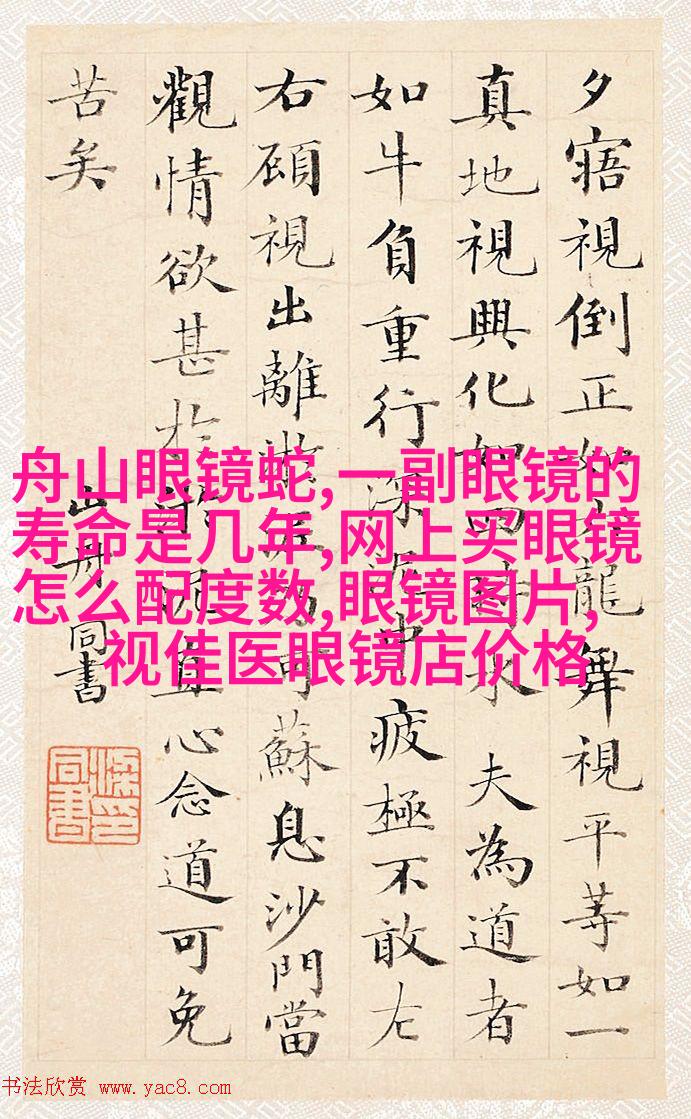 夕寤視倒正如六龍舞視平等如一
真地視興化如四時木 夫為道者
如牛負重行深泥中疲極不敢左
右顧視出離淤泥乃可蘇息沙門當
觀情欲甚於淤泥直心念道可免
苦矣
山舟同書
舟山眼镜蛇,一副眼镜的
寿命是几年,网上买眼镜
怎么配度数,眼镜图片,
视佳医眼镜店价格
书法欣赏 www.yac8.com